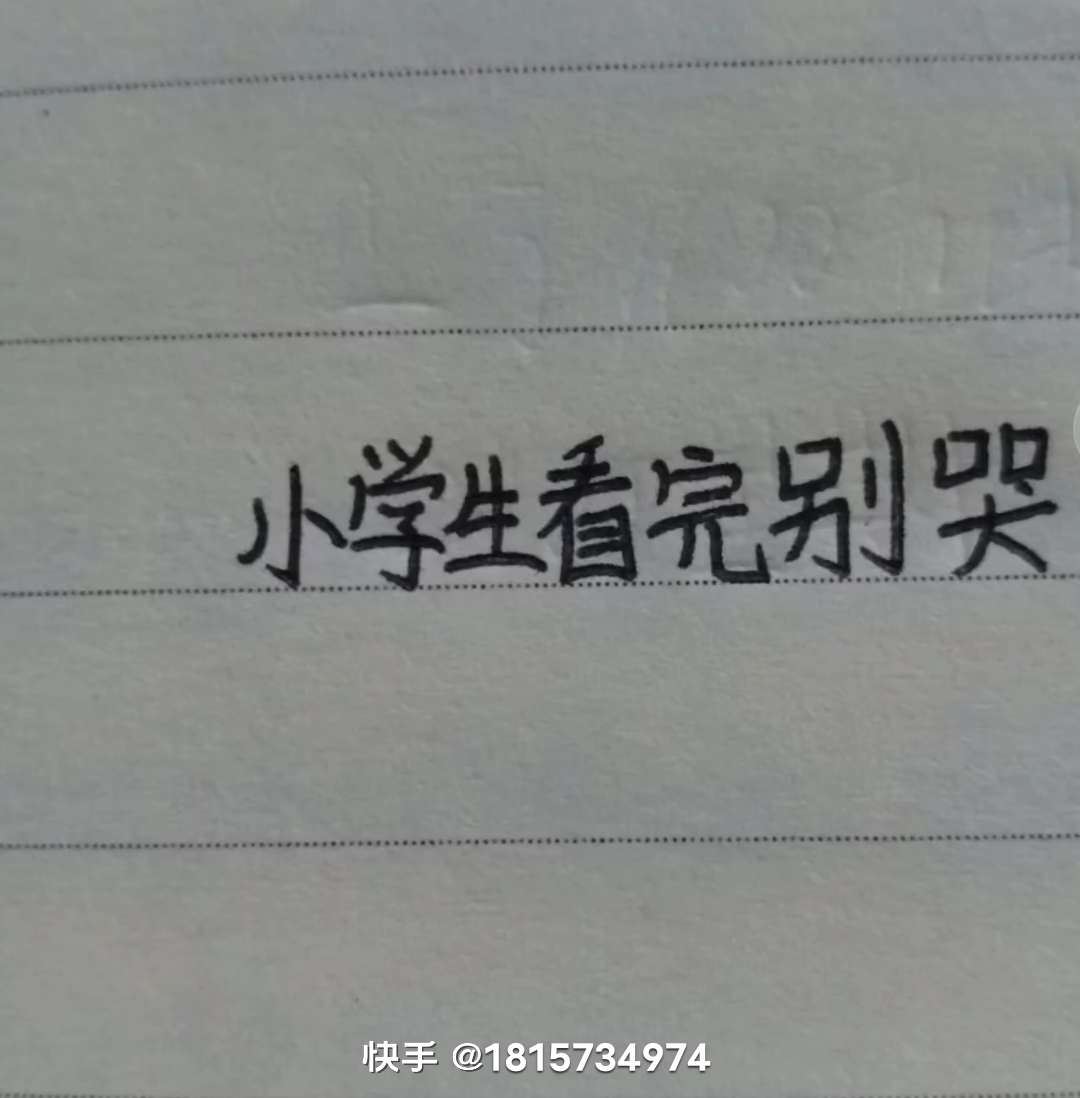 小学生看完别哭
快手 @1815734974